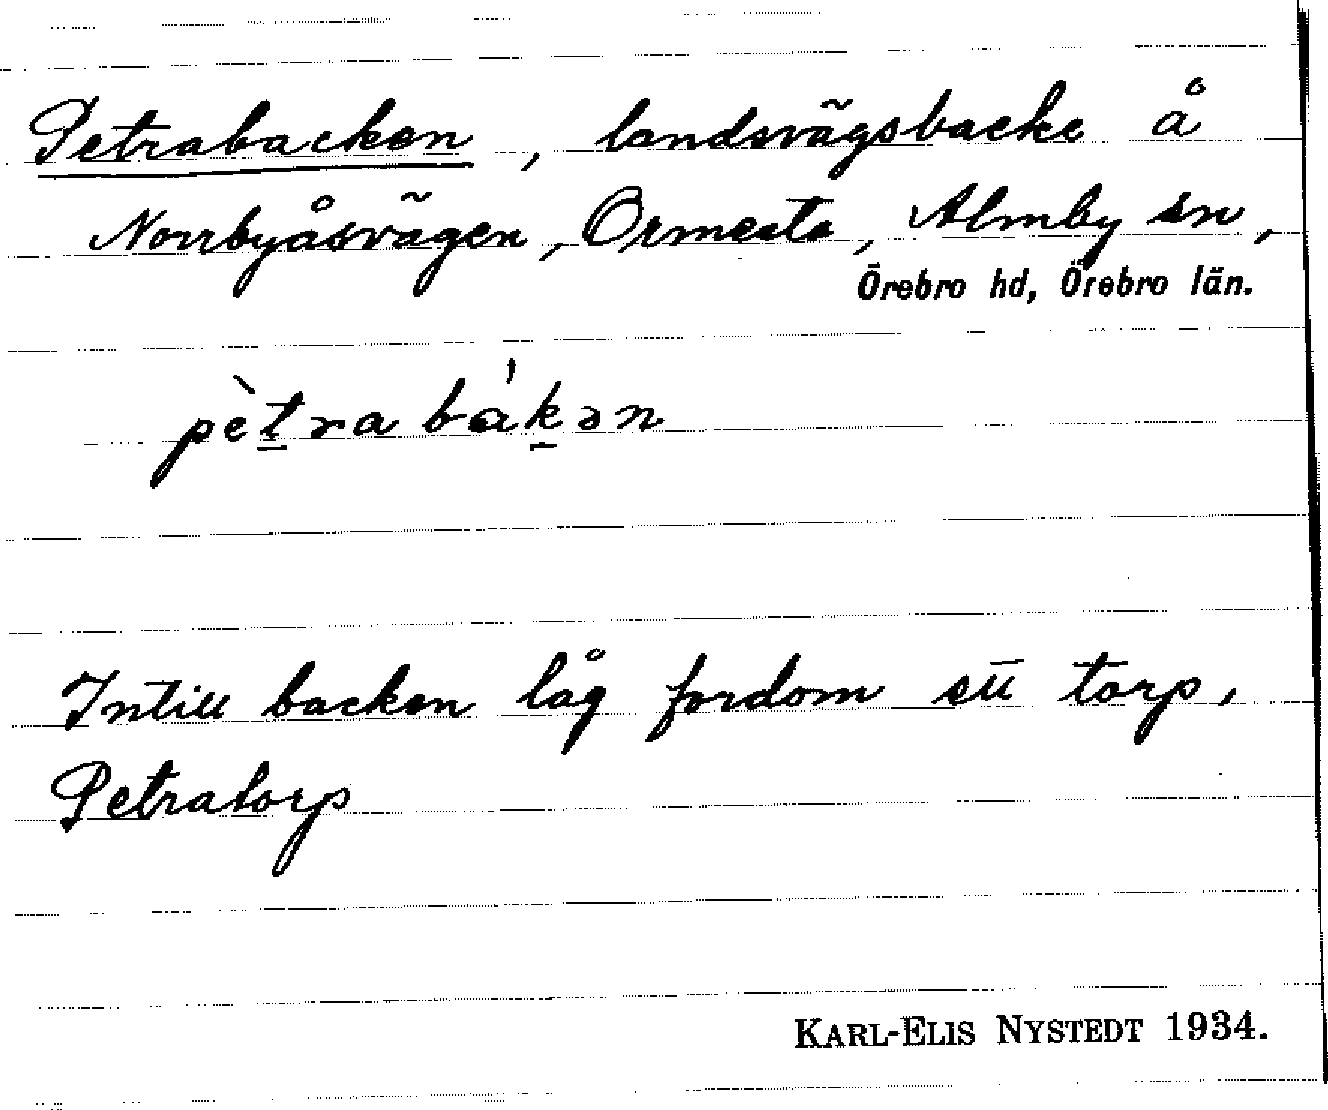 Petrabacken, landsvägsbacke å
Norrbyåsvägen, Ormesta, Almby sn,
Örebro hd, Örebro län.
pètra bákən
Intill backen låg fordom ett torp,
Petratorp
KARL-ELIS NYSTEDT 1934.